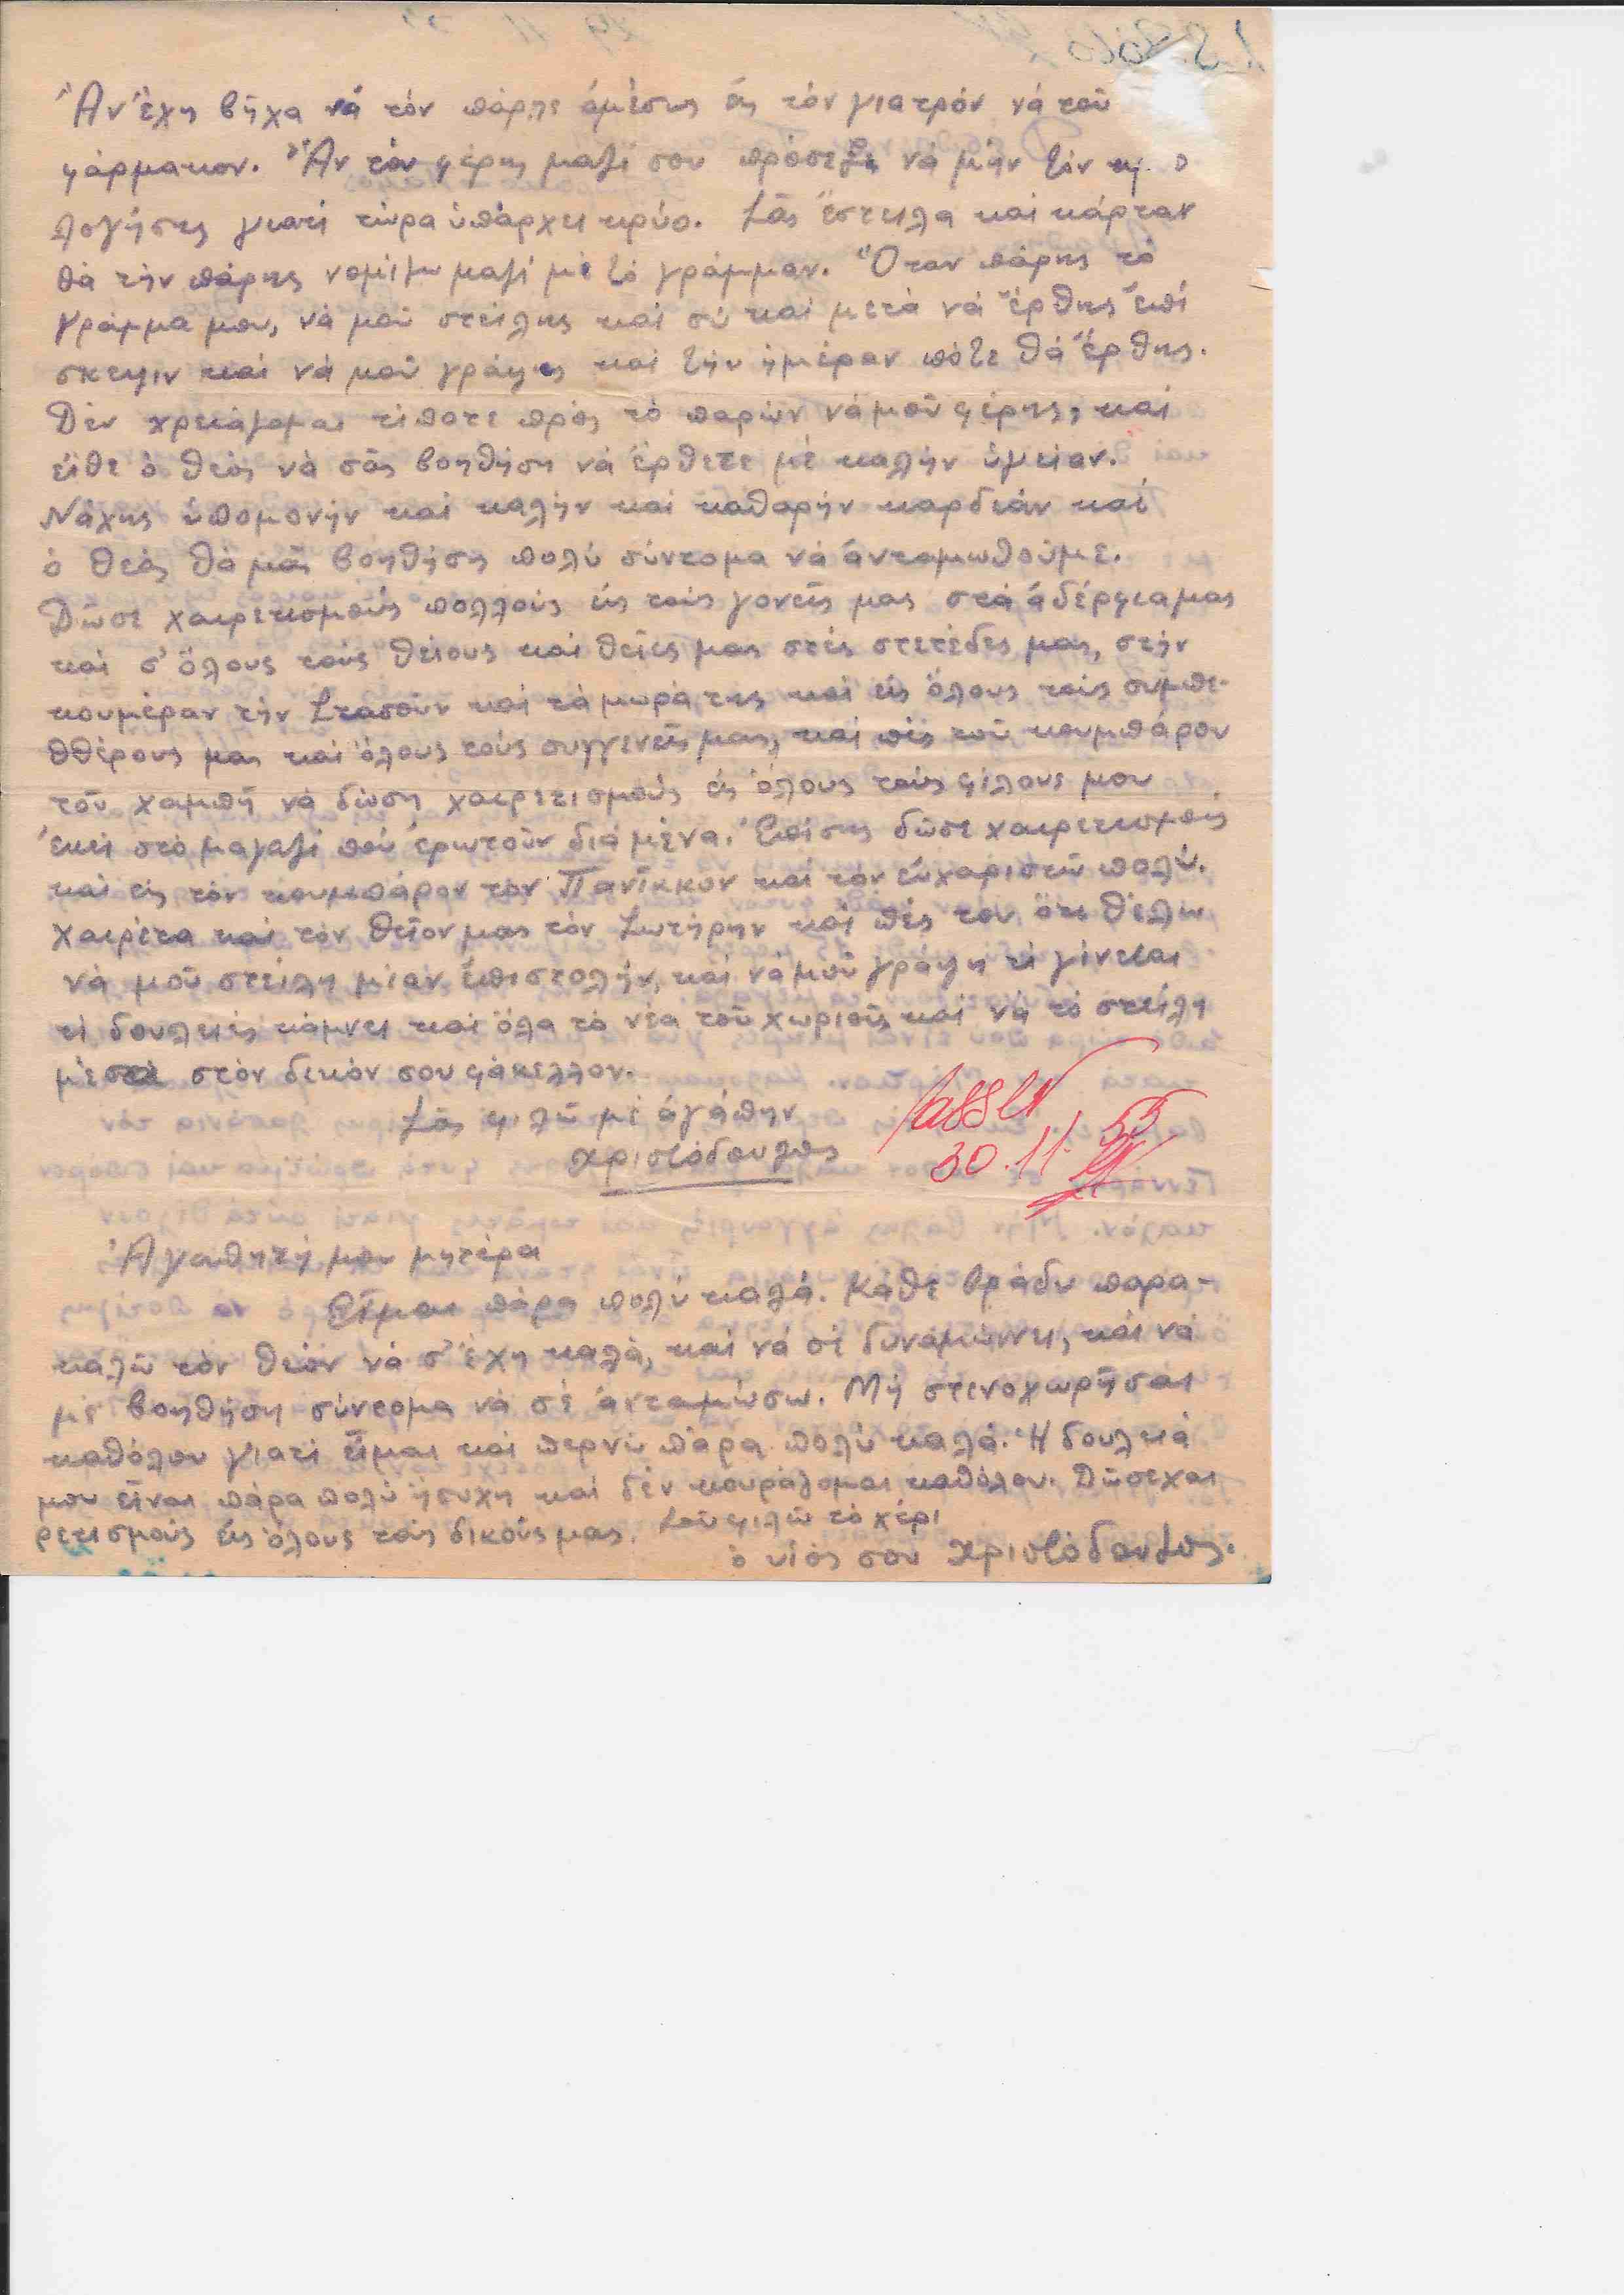 Ἄν ἔχη βῆχα νά τόν πάρῃς ἀμέσως εἰς τόν γιατρόν νά τοῦ
φάρμακον. Ἄν τόν φέρης μαζί σου πρόσεξε νά μήν τόν κρ ο
λογήσης γιατί τώρα ὑπάρχει κρύο. Σᾶς ἔστειλα καί κάρταν
θά τήν πάρης νομίζω μαζί μέ τό γράμμαν. Ὅταν πάρης τό
γράμμα μου, νά μοῦ στείλης καί σύ καί μετά νά ἔρθης ἐπί
σκεψιν καί νά μοῦ γράψης καί τήν ἡμέραν πότε θά ἔρθης.
Δέν χρειάζομαι τίποτε πρός τό παρών νά μοῦ φέρης, καί
εἴθε ὁ θεός νά σᾶς βοηθήση νά ἔρθετε μέ καλήν ὑγείαν.
Νάχης ὑπομονήν καί καλήν καί καθαρήν καρδιάν καί
ὁ θεός θά μᾶς βοηθήση πολύ σύντομα νά ἀνταμωθοῦμε.
Δῶσε χαιρετισμούς πολλούς εἰς τούς γονεῖς μας στά ἀδέρφια μας
καί σ' ὅλους τούς θείους καί θεῖες μας στές στετέδες μας, στήν
κουμέραν τήν Στασοῦν καί τά μωρά της καί εἰς ὅλους τούς συμπε-
θθέρους μας καί ὅλους τούς συγγενεῖς μας, καί πές τοῦ κουμπάρου
τοῦ Χαμπῆ νά δώση χαιρετισμούς εἰς ὅλους τούς φίλους μου
ἐκεῖ στό μαγαζί πού ἐρωτοῦν διά μένα. Ἐπίσης δῶσε χαιρετισμούς
καί εἰς τόν κουμπάρον τόν Πανῖκκον καί τόν εὐχαριστῶ πολύ.
Χαιρέτα καί τόν θεῖον μας τόν Σωτήρην καί πές του ὅτι θέλω
νά μοῦ στείλη μίαν ἐπιστολήν, καί νά μοῦ γράψη τί γίνεται
τί δουλειές κάμνει καί ὅλα τά νέα τοῦ χωριοῦ, καί νά τό στείλη
μέσα στόν δικόν σου φάκελλον.
Σᾶς φιλῶ μέ ἀγάπην
Χριστόδουλος
Passed
30.11.55
Ἀγαπητή μου μητέρα
Εἶμαι πάρα πολύ καλά. Κάθε βράδυ παρα-
καλῶ τόν θεόν νά σ' ἔχη καλά, καί νά σέ δυναμώννει, καί νά
μέ βοηθήση σύντομα νά σέ ἀνταμώσω. Μή στενοχωρῆσαι
καθόλου γιατί εἶμαι καί περνῶ πάρα πολύ καλά. Ἡ δουλειά
μου εἶναι πάρα πολύ ἥσυχη καί δέν κουράζομαι καθόλου. Δῶσε χαι
ρετισμούς εἰς ὅλους τούς δικούς μας. Σοῦ φιλῶ τό χέρι
ὁ υἱός σου Χριστόδουλος.